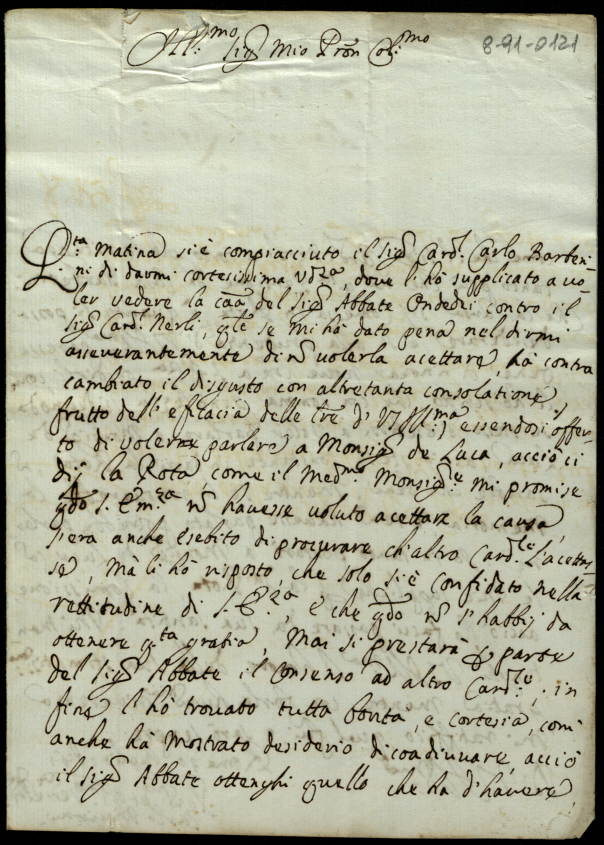 Ill:mo Sig.r Mio Pron Col:mo
8-91-0121
Q.ta Matina si è compiacciuto il Sig.r Card.l Carlo Barberi-
ni di darmi cortesissima ud.za, dove li hò supplicato a vo-
ler vedere la caa del Sig.r Abbate Ondedei contro il
Sig.r Card.l Nerli, q.le se mi hà dato pena nel dirmi
asseverantemente di nō volerla acettare, hà contra
cambiato il disgusto con altretanta consolatione,
frutto dell'efficacia delle lre di V.S. Ill:ma, essendosi offer-
to di volerne parlare a Monsig.r de Luca, acciò ci
dij la Rota, come il Med.mo Monsig.re mi promise
q.do S. Em.za nō havesse voluto acettare la causa
s'era anche esebito di procurare ch'altro Card.le l'acettas
se, Mà li hò risposto, che solo si è confidato nella
rettitudine di S. E.za, e che q.do nō l'habbij da
ottenere q.ta gratia, Mai si prestarà p parte
del Sig.r Abbate il Consenso ad altro Card.le, in
fine l'hò trovato tutta bontà, e cortesia, com'
anche hà Mostrato desiderio di coadiuvare, acciò
il Sig.r Abbate ottenghi quello che ha d'havere,